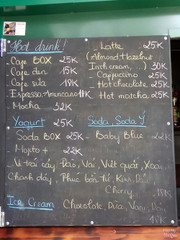 Hot drink!
Cafe BOX 25K
Cafe đen 15K
Cafe sữa 18K
Espresso/Americano
Mocha 32K
Latte 25K
(Almond, hazelnut
Irish cream) 30K
Cappuccino 25K
Hot chocolate 25K
Hot matcha 25K
Yogurt 25K
Soda BOX 22K
Mojito
Soda, Soda Ý
Baby Blue 22K
Vị trái cây: Dâu, Vải, Việt quất, Xoài
Chanh dây, Phúc bồn tử, Kiwi,
Cherry
Ice Cream Chocolate, Dừa, Vani,
18K